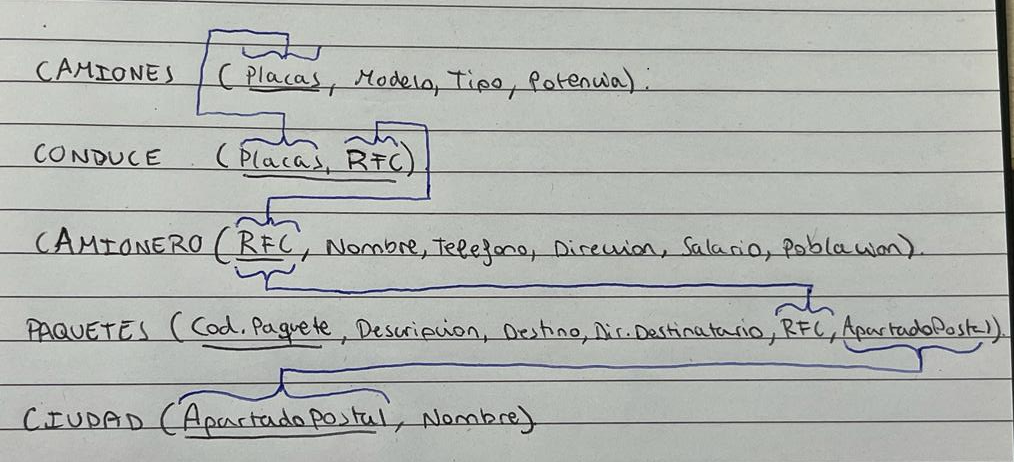 CAMIONES (Placas, Modelo, Tipo, Potencia).
CONDUCE (Placas, RFC)
CAMIONERO (RFC, Nombre, Telefono, Direccion, Salario, Poblacion).
PAQUETES (Cod. Paquete, Descripcion, Destino, Dir. Destinatario, RFC, ApartadoPostal).
CIUDAD (ApartadoPostal, Nombre)